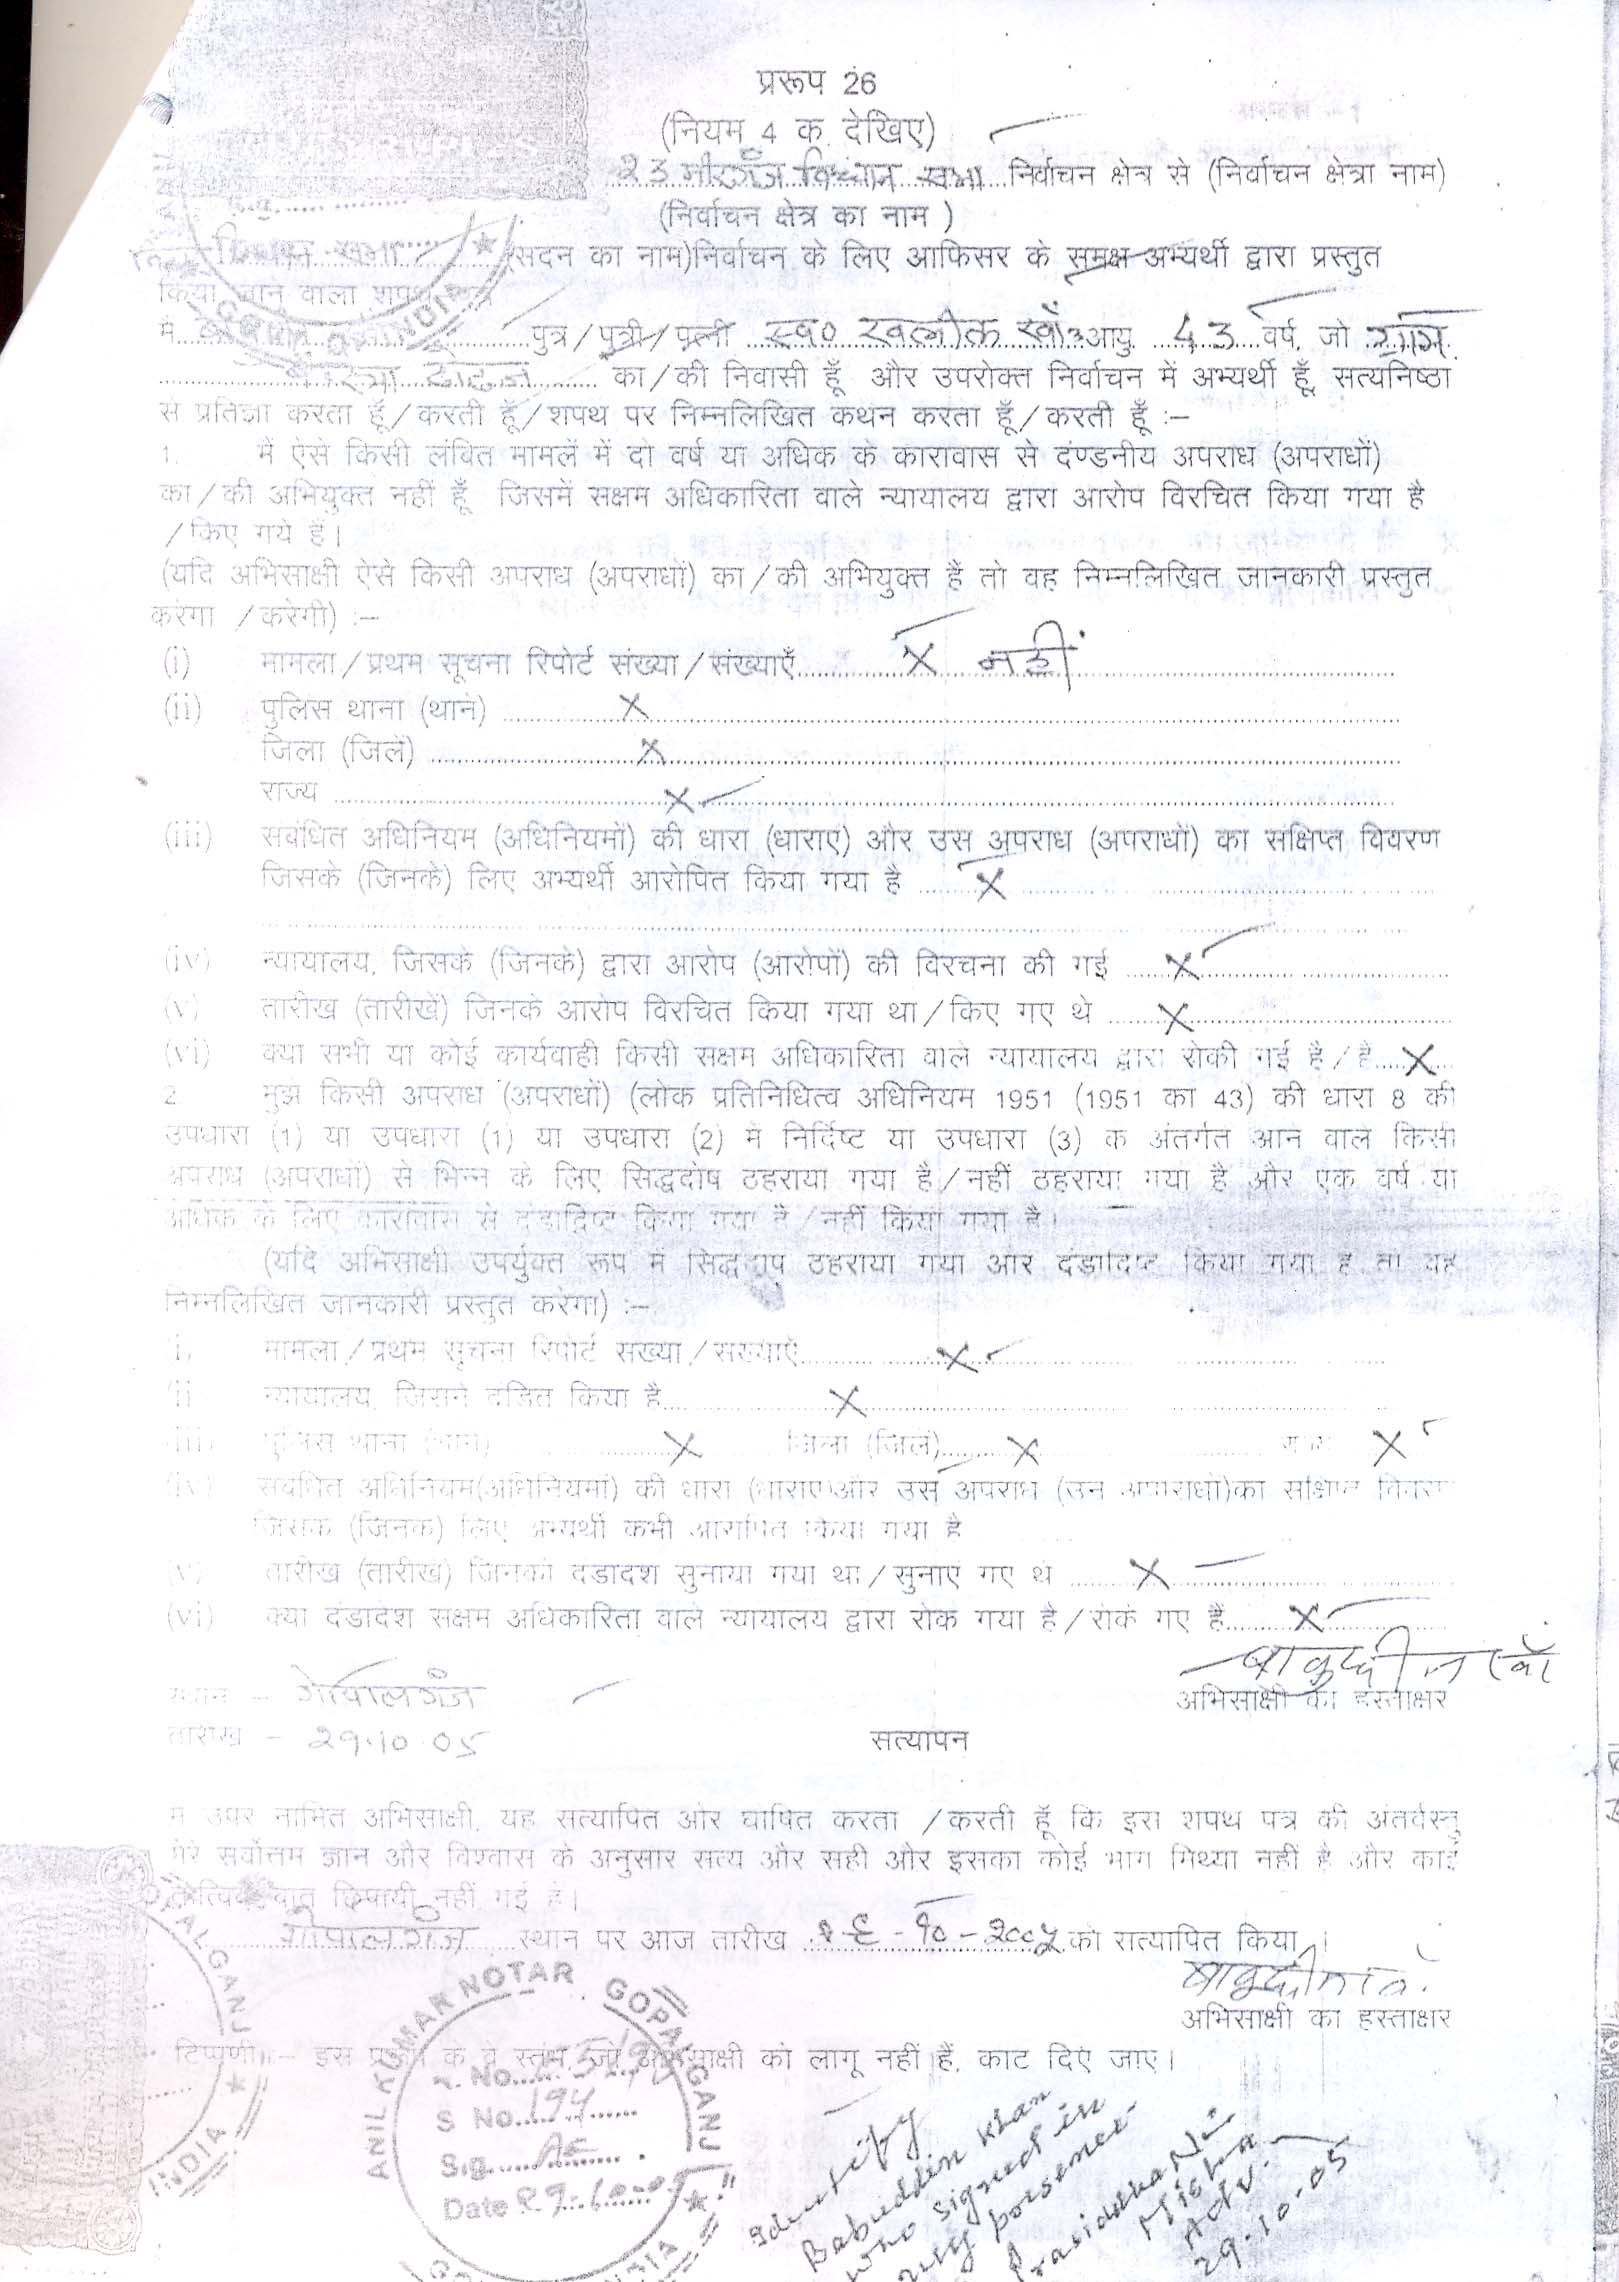 प्ररूप 26
(नियम 4 क. देखिए)
23 मीरगंज विधान सभा निर्वाचन क्षेत्र से (निर्वाचन क्षेत्रा नाम)
(निर्वाचन क्षेत्र का नाम )
विधान सभा (सदन का नाम)निर्वाचन के लिए आफिसर के समक्ष अभ्यर्थी द्वारा प्रस्तुत
किया जाने वाला शपथ
मैं पुत्र/पुत्री/पत्नी स्व० खलील खाँ आयु 43 वर्ष, जो ग्राम
का/की निवासी हूँ और उपरोक्त निर्वाचन में अभ्यर्थी हूँ, सत्यनिष्ठा
से प्रतिज्ञा करता हूँ/करती हूँ/शपथ पर निम्नलिखित कथन करता हूँ/करती हूँ :–
1. मैं ऐसे किसी लंबित मामलें में दो वर्ष या अधिक के कारावास से दंण्डनीय अपराध (अपराधों)
का/की अभियुक्त नहीं हूँ जिसमें सक्षम अधिकारिता वाले न्यायालय द्वारा आरोप विरचित किया गया है
/किए गये हैं।
(यदि अभिसाक्षी ऐसे किसी अपराध (अपराधों) का/की अभियुक्त हैं तो वह निम्नलिखित जानकारी प्रस्तुत
करेगा /करेगी) :–
(i) मामला/प्रथम सूचना रिपोर्ट संख्या/संख्याएँ X नहीं
(ii) पुलिस थाना (थाने) X
जिला (जिले) X
राज्य X
(iii) संबंधित अधिनियम (अधिनियमों) की धारा (धाराएं) और उस अपराध (अपराधों) का संक्षिप्त विवरण
जिसके (जिनके) लिए अभ्यर्थी आरोपित किया गया है X
(iv) न्यायालय, जिसके (जिनके) द्वारा आरोप (आरोपों) की विरचना की गई X
(v) तारीख (तारीखें) जिनके आरोप विरचित किया गया था/किए गए थे X
(vi) क्या सभी या कोई कार्यवाही किसी सक्षम अधिकारिता वाले न्यायालय द्वारा रोकी गई है/हैं X
2 मुझे किसी अपराध (अपराधों) (लोक प्रतिनिधित्व अधिनियम 1951 (1951 का 43) की धारा 8 की
उपधारा (1) या उपधारा (1) या उपधारा (2) में निर्दिष्ट या उपधारा (3) के अंतर्गत आने वाले किसी
अपराध (अपराधों) से भिन्न के लिए सिद्धदोष ठहराया गया है/नहीं ठहराया गया है और एक वर्ष या
अधिक के लिए कारावास से दंडादिष्ट किया गया है/नहीं किया गया है।
(यदि अभिसाक्षी उपर्युक्त रूप में सिद्धदोष ठहराया गया और दंडादिष्ट किया गया है तो वह
निम्नलिखित जानकारी प्रस्तुत करेगा) :–
i. मामला/प्रथम सूचना रिपोर्ट संख्या/संख्याएँ X
ii न्यायालय, जिसने दंडित किया है X
iii) पुलिस थाना (थाने) X जिला (जिले) X राज्य X
(iv) संबंधित अधिनियम(अधिनियमों) की धारा (धाराएं)और उस अपराध (उन अपराधों)का संक्षिप्त विवरण
जिसके (जिनके) लिए अभ्यर्थी कभी आरोपित किया गया है
(v) तारीख (तारीखें) जिनको दंडादेश सुनाया गया था/सुनाए गए थे X
(vi) क्या दंडादेश सक्षम अधिकारिता वाले न्यायालय द्वारा रोक गया है/रोके गए हैं X
बाबुद्दीन खाँ
स्थान – गोपालगंज
अभिसाक्षी का हस्ताक्षर
तारीख – 29.10.05
सत्यापन
मैं उपर नामित अभिसाक्षी, यह सत्यापित और घोषित करता /करती हूँ कि इस शपथ पत्र की अंतर्वस्तु
मेरे सर्वोत्तम ज्ञान और विश्वास के अनुसार सत्य और सही और इसका कोई भाग मिथ्या नहीं है और कोई
तात्विक बात छिपायी नहीं गई है।
गोपालगंज स्थान पर आज तारीख २९-१०-२००५ को सत्यापित किया ।
बाबुद्दीन खाँ
अभिसाक्षी का हस्ताक्षर
टिप्पणी :– इस के वे स्तंभ, जो अभिसाक्षी को लागू नहीं हैं, काट दिए जाए।
ANIL KUMAR NOTAR GOPALGANJ
S No. 194
Sig.
Date 29.10.05
Identify
Babuddin Khan
who signed in
my presence
Prasiddha Na.
Mishra
Adv.
29.10.05